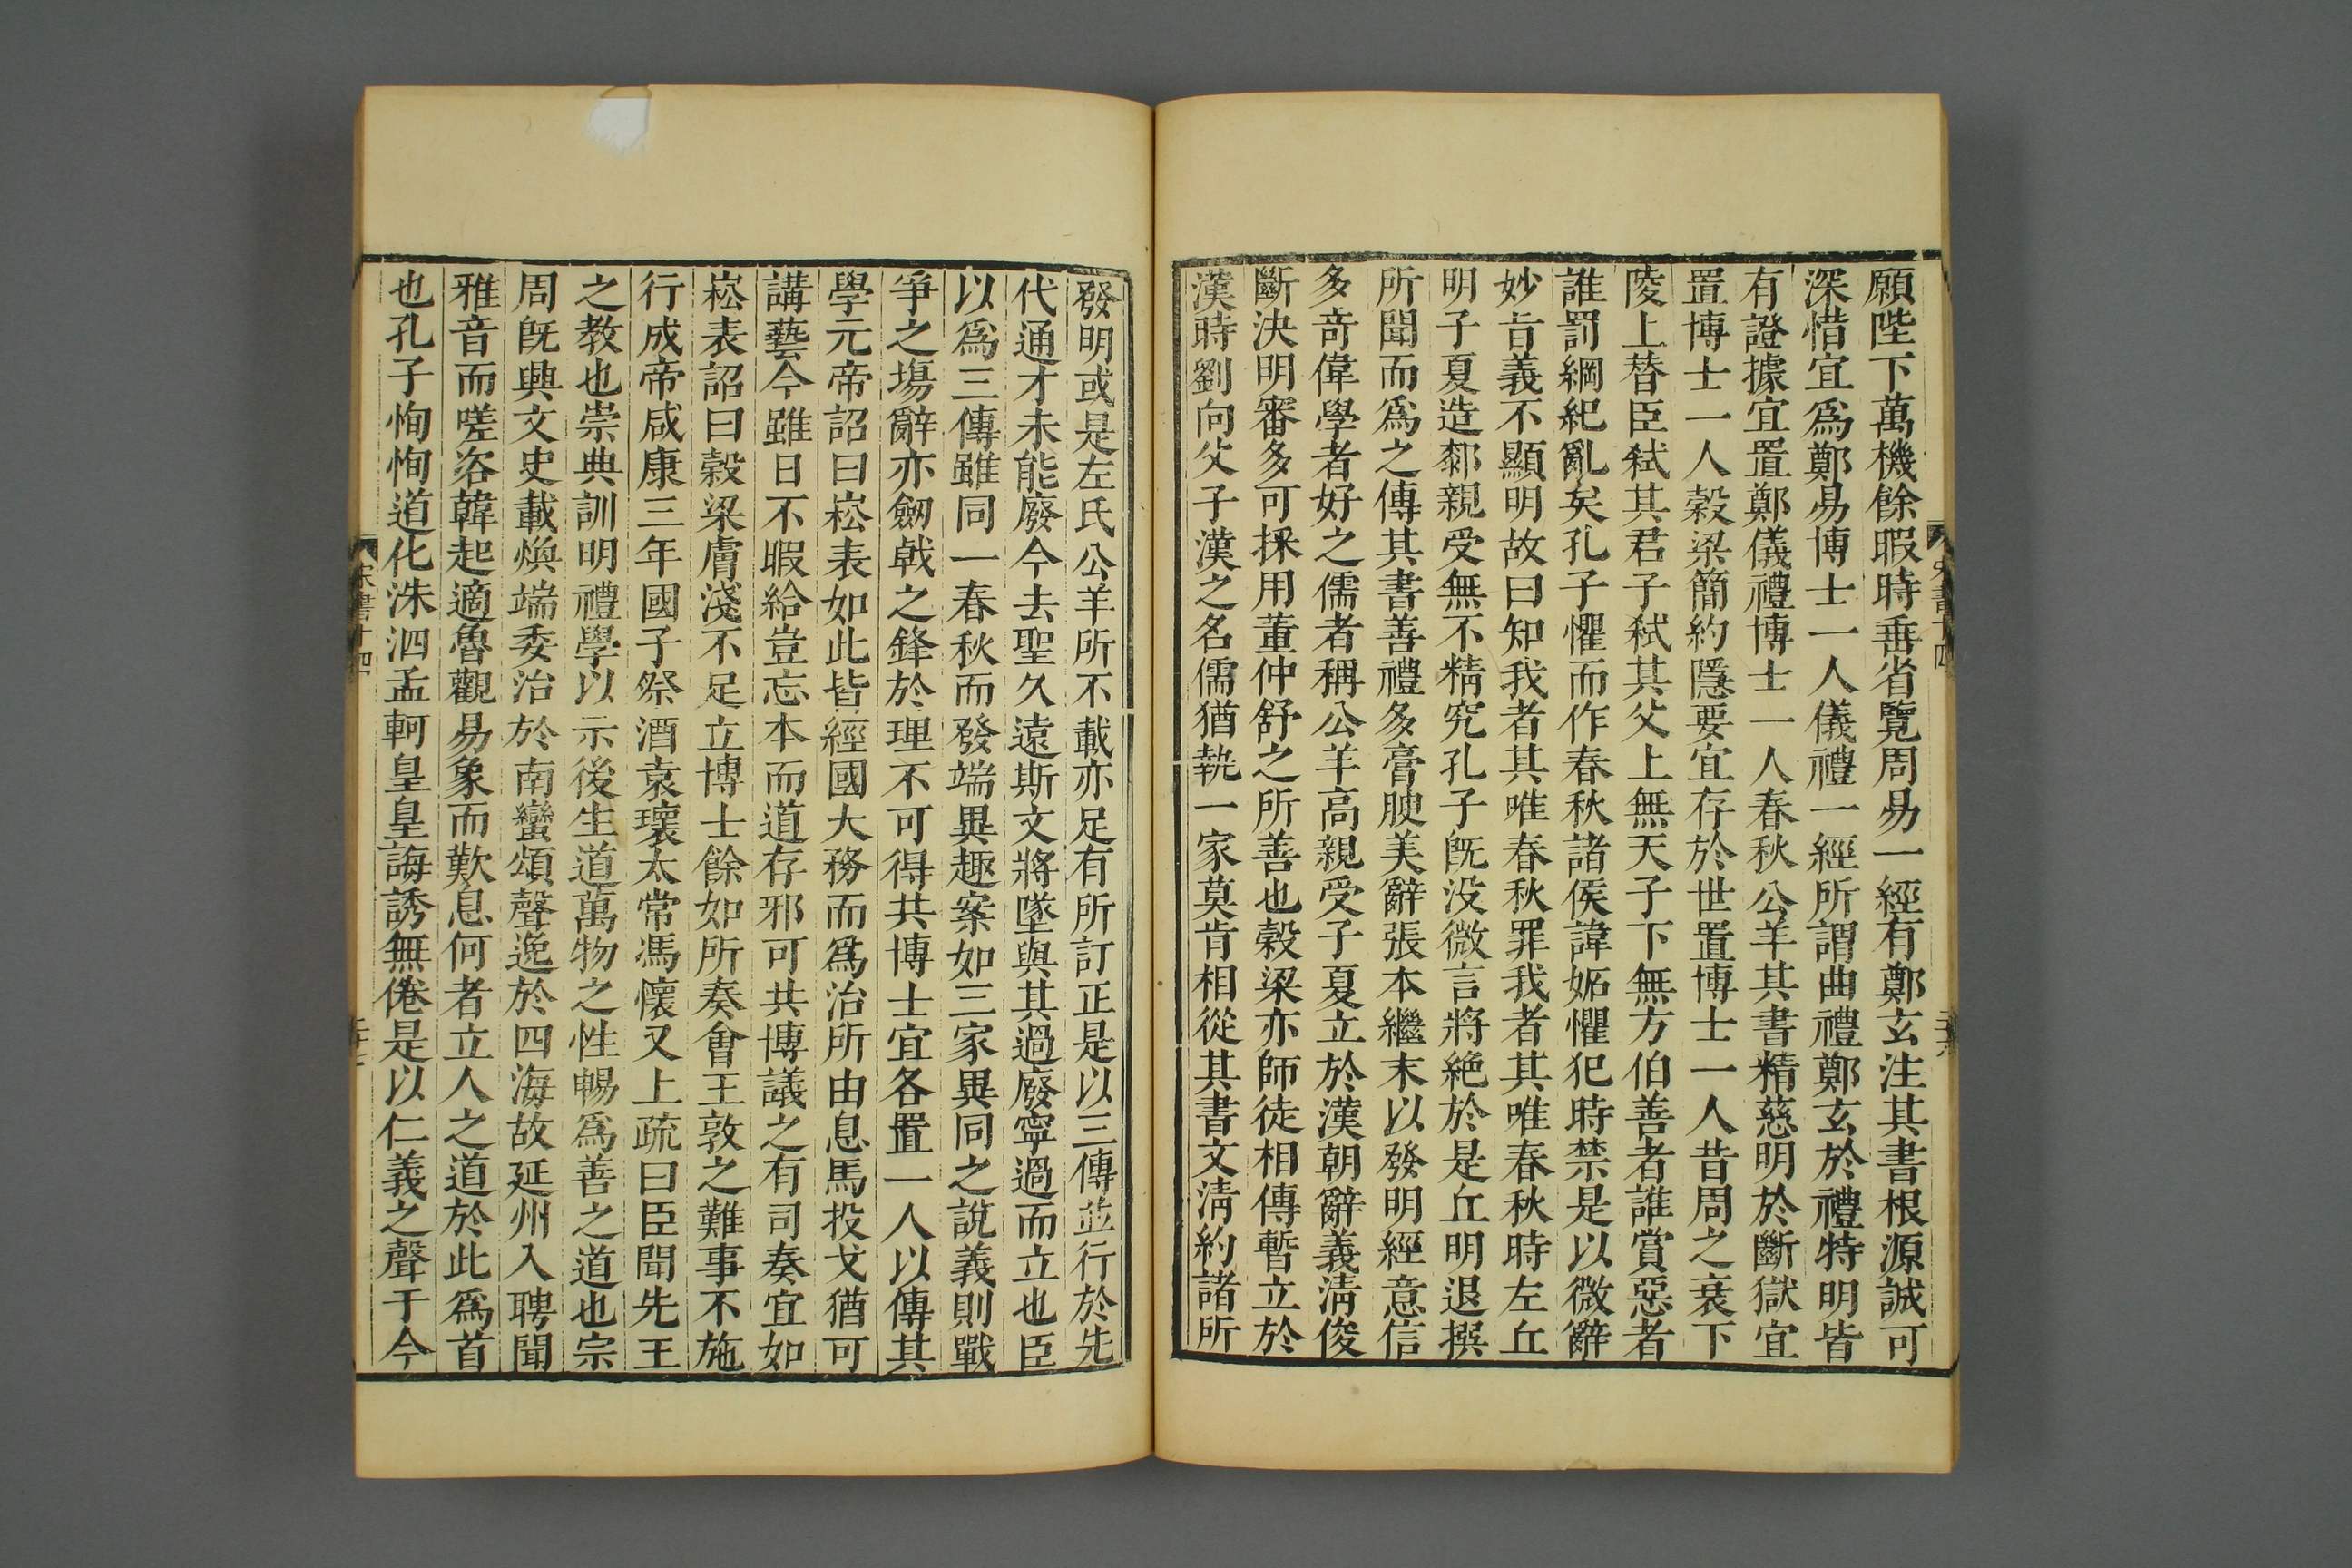 願陛下萬機餘暇時垂省覽周易一經有鄭玄注其書根源誠可
深惜宜爲鄭易博士一人儀禮一經所謂曲禮鄭玄於禮特明皆
有證據宜置鄭儀禮博士一人春秋公羊其書精慈明於斷獄宜
置博士一人穀梁簡約隱要宜存於世置博士一人昔周之衰下
陵上替臣弑其君子弑其父上無天子下無方伯善者誰賞惡者
誰罰綱紀亂矣孔子懼而作春秋諸侯諱妬懼犯時禁是以微辭
妙旨義不顯明故曰知我者其唯春秋罪我者其唯春秋時左丘
明子夏造䣛親受無不精究孔子旣没微言將絶於是丘明退撰
所聞而爲之傳其書善禮多膏腴美辭張本繼末以發明經意信
多奇偉學者好之儒者稱公羊高親受子夏立於漢朝辭義淸俊
斷決明審多可採用董仲舒之所善也穀梁亦師徒相傳暫立於
漢時劉向父子漢之名儒猶執一家莫肯相從其書文淸約諸所
發明或是左氏公羊所不載亦足有所訂正是以三傳並行於先
代通才未能廢今去聖久遠斯文將墜與其過廢寧過而立也臣
以爲三傳雖同一春秋而發端異趣案如三家異同之說義則戰
爭之場辭亦劒戟之鋒於理不可得共博士宜各置一人以傳其
學元帝詔曰崧表如此皆經國大務而爲治所由息馬投戈猶可
講藝今雖日不暇給豈忘本而道存邪可共博議之有司奏宜如
崧表詔曰穀梁膚淺不足立博士餘如所奏會王敦之難事不施
行成帝咸康三年國子祭酒袁瓌太常馮懷又上疏曰臣聞先王
之教也崇典訓明禮學以示後生道萬物之性暢爲善之道也宗
周旣興文史載煥端委治於南蠻頌聲逸於四海故延州入聘聞
雅音而嗟咨韓起適魯觀易象而歎息何者立人之道於此爲首
也孔子恂恂道化洙泗孟軻皇皇誨誘無倦是以仁義之聲于今
宋書十四